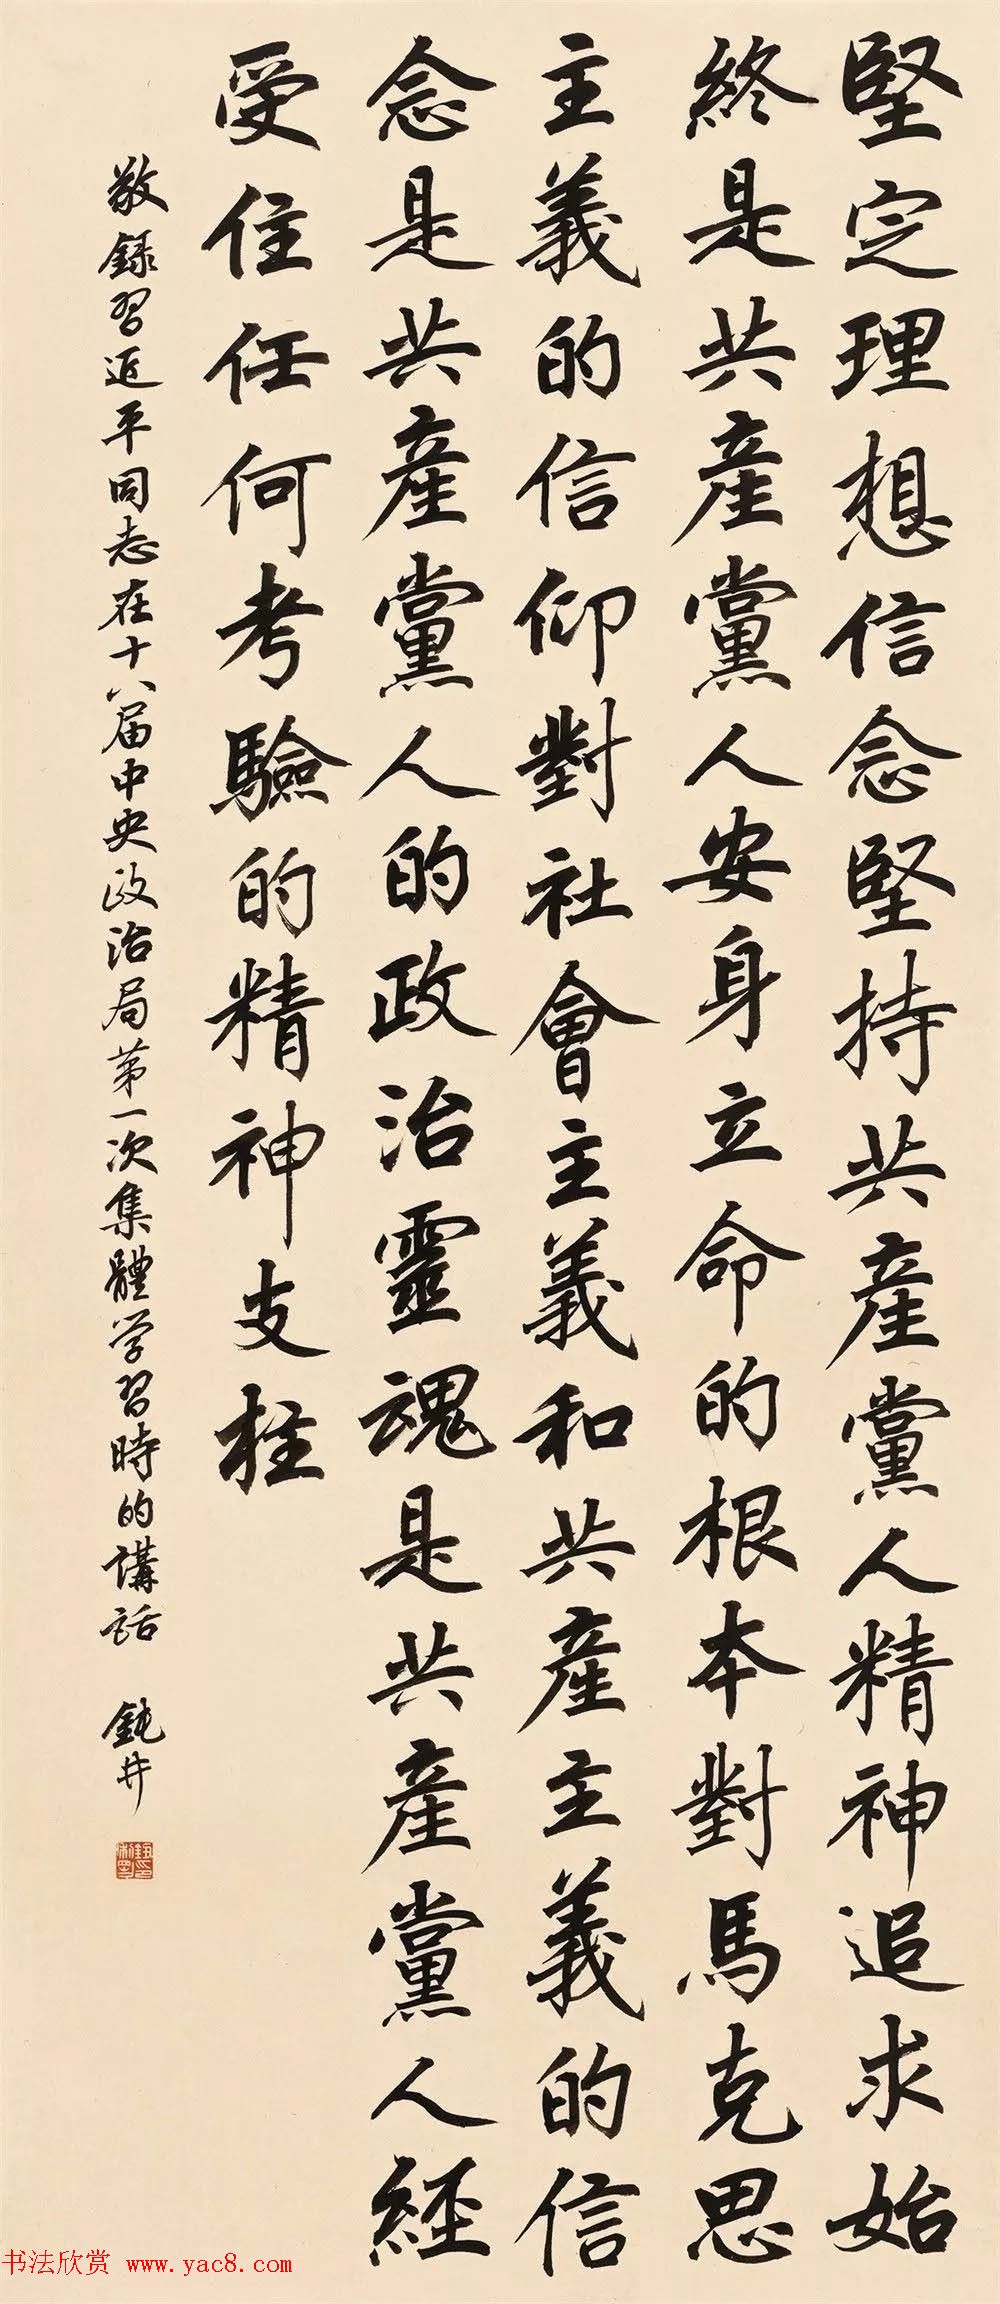 堅定理想信念堅持共產黨人精神追求始
終是共產黨人安身立命的根本對馬克思
主義的信仰對社會主義和共產主義的信
念是共產黨人的政治靈魂是共產黨人經
受住任何考驗的精神支柱
敬錄習近平同志在十八届中央政治局第一次集體学習時的講話 鈍井
书法欣赏 www.yac8.com